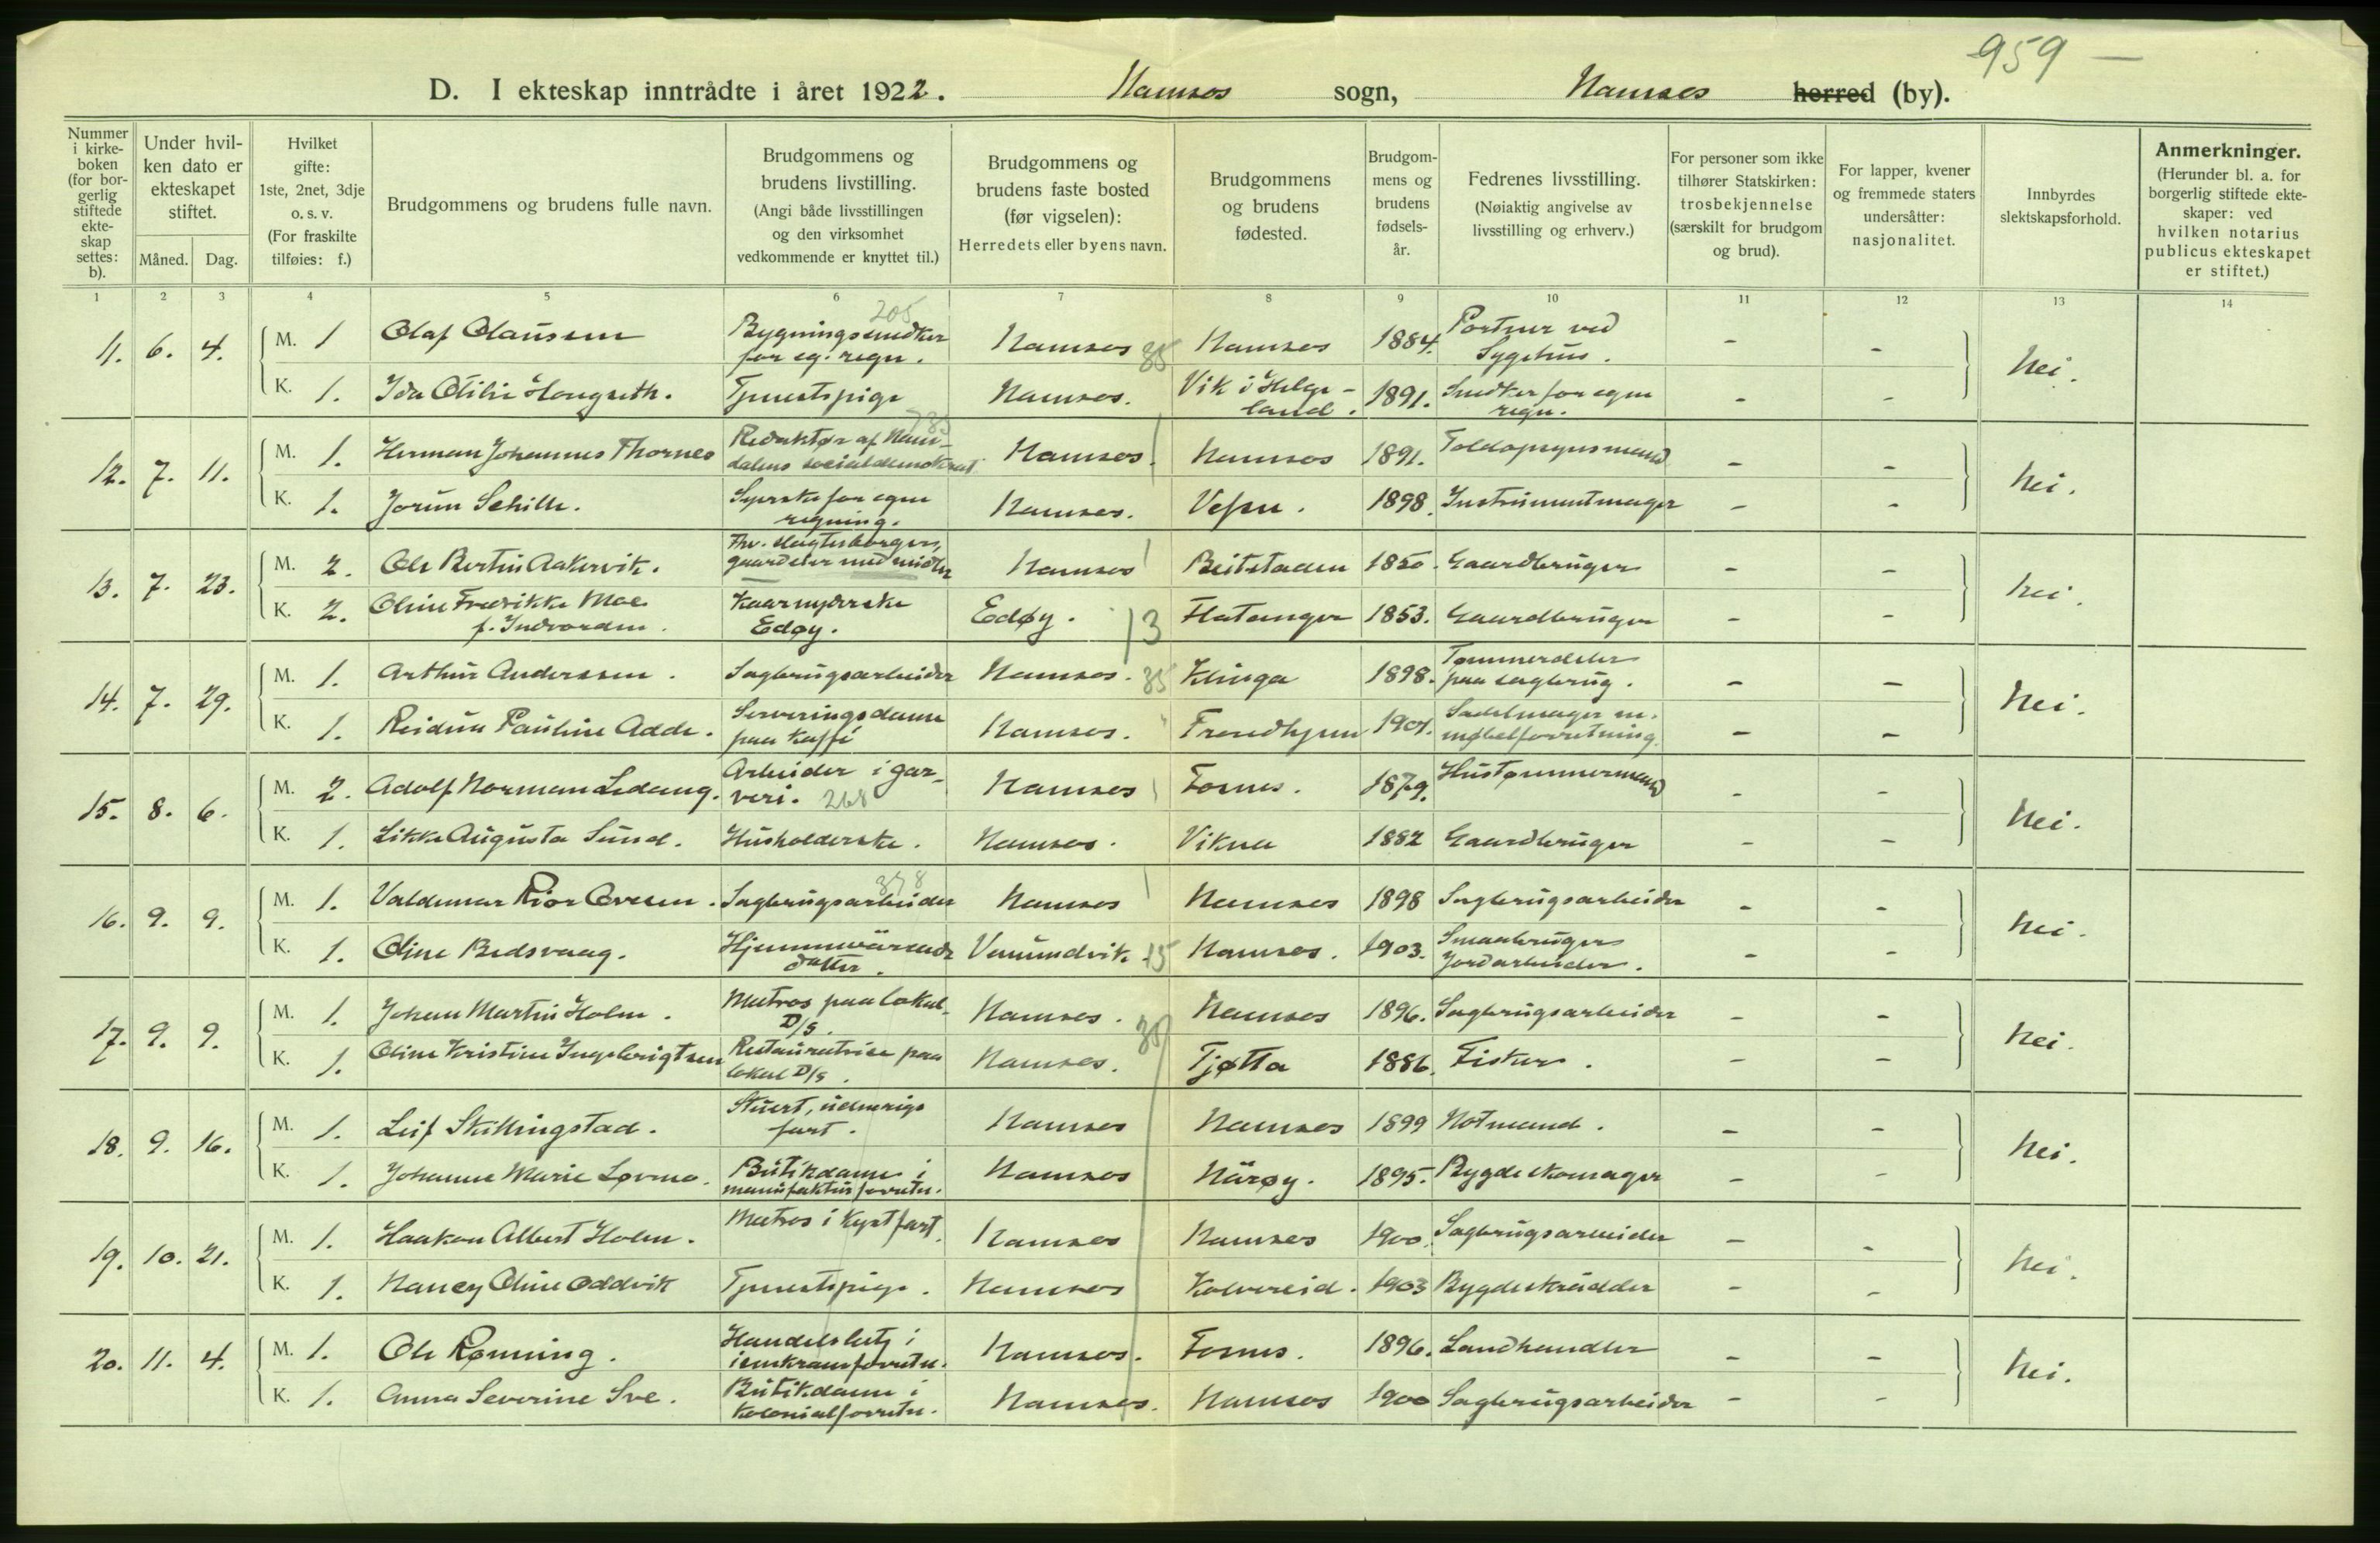 959 —
D. I ekteskap inntrådte i året 1922. Namsos sogn, Namsos herred (by).
Nummer i kirkeboken (for borgerlig stiftede ekteskap settes: b).
Under hvilken dato er ekteskapet stiftet.
Måned. Dag.
Hvilket gifte: 1ste, 2net, 3dje o. s. v. (For fraskilte tilføies: f.)
Brudgommens og brudens fulle navn.
Brudgommens og brudens livstilling. (Angi både livsstillingen og den virksomhet vedkommende er knyttet til.)
Brudgommens og brudens faste bosted (før vigselen): Herredets eller byens navn.
Brudgommens og brudens fødested.
Brudgommens og brudens fødselsår.
Fedrenes livsstilling. (Nøiaktig angivelse av livsstilling og erhverv.)
For personer som ikke tilhører Statskirken: trosbekjennelse (særskilt for brudgom og brud).
For lapper, kvener og fremmede staters undersåtter: nasjonalitet.
Innbyrdes slektskapsforhold.
Anmerkninger. (Herunder bl. a. for borgerlig stiftede ekteskaper: ved hvilken notarius publicus ekteskapet er stiftet.)
1 2 3 4 5 6 7 8 9 10 11 12 13 14
11. 6. 4. M. 1 Olaf Olaussen Bygningssnedker for eg. regn. 205 Namsos 35 Namsos 1884. Portner ved Sygehus. - - Nei.
K. 1. Ida Otilie Hongseth. Tjenestpige Namsos. Vik i Helgeland. 1891. Snedker for egen regn. - -
12. 7. 11. M. 1. Herman Johannes Thornes Redaktør af Namdalens socialdemokrat Namsos. Namsos 1891. Toldopsynsmand - - Nei.
K. 1. Jorun Schille. Syerske for egen regning. Namsos. Vefsn. 1898. Instrumentmager - -
13. 7. 23. M. 2. Ole Bertin Aakervik. gaardeier med midler Namsos Beitstaden 1850. Gaardbruger - - Nei.
K. 2. Oline Fredrikke Moe f. Indvorden. Kaarnyderske Edøy. Edøy. 13 Flatanger 1853. Gaardbruger - -
14. 7. 29. M. 1. Arthur Anderssen. Sagbrugsarbeider Namsos. 35 Klinga 1898. Tømmerdeler paa sagbrug. - - Nei.
K. 1. Reidun Pauline Adde. Serveringsdame paa Kaffé Namsos. Trondhjem 1901. Sadelmager m. møbelforretning. - -
15. 8. 6. M. 2. Adolf Norman Ledang. Arbeider i garveri. 268 Namsos Fosnes. 1879. Hustømmermand - - Nei.
K. 1. Likke Augusta Sund. Husholderske. Namsos. Vikna 1882 Gaardbruger - -
16. 9. 9. M. 1. Valdemar Rior Ovesen. Sagbrugsarbeider 378 Namsos Namsos 1898 Sagbrugsarbeider - - Nei.
K. 1. Oline Bedsvaag. Hjemmeværende datter. Vemundvik 15 Namsos. 1903. Smaabruger Jordarbeider. - -
17. 9. 9. M. 1. Johan Martin Holm. Matros paa lokal- D/S. Namsos. 35 Namsos 1896. Sagbrugsarbeider - - Nei.
K. 1. Oline Kristine Ingebrigtsen Restauratrise paa lokal D/S. Namsos. Tjøtta 1886. Fisker. - -
18. 9. 16. M. 1. Leif Skillingstad. Stuert, udenrigs fart. Namsos Namsos 1899 Notmand. - - Nei.
K. 1. Johanne Marie Løvmo. Butikdame i manufakturforretn. Namsos Närøy. 1895. Bygdeskomager - -
19. 10. 21. M. 1. Haakon Albert Holm. Matros i Kystfart. Namsos Namsos 1900. Sagbrugsarbeider - - Nei.
K. 1. Nancy Oline Oddvik Tjenestpige. Namsos Kolvereid. 1903 Bygdeskrædder - -
20. 11. 4. M. 1. Ole Rønning. Handelsbetj i isenkramforretn. Namsos. Fosnes. 1896. Landhandler - - Nei.
K. 1. Anna Severine Sve. Butikdame i Kolonialforretn. Namsos. Namsos 1900 Sagbrugsarbeider - -